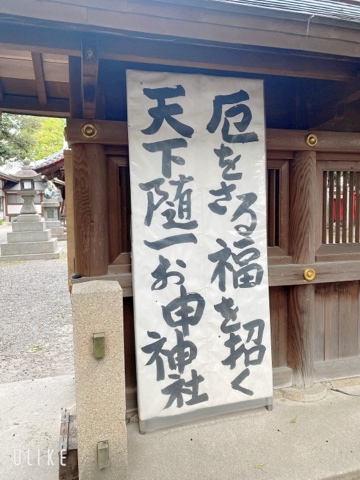 厄をさる福を招く
天下随一お申神社
ULIKE